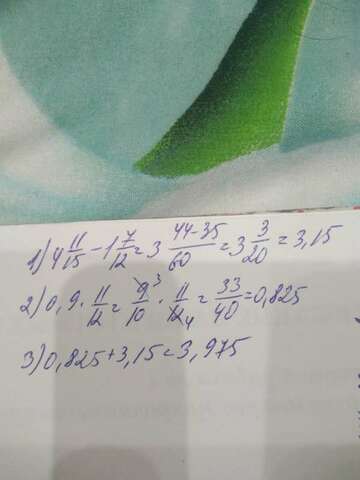 1) 4 11/15 - 1 7/12 = 3 44-35/60 = 3 3/20 = 3,15
2) 0,9 · 11/12 = 9³/10 · 11/12₄ = 33/40 = 0,825
3) 0,825 + 3,15 = 3,975